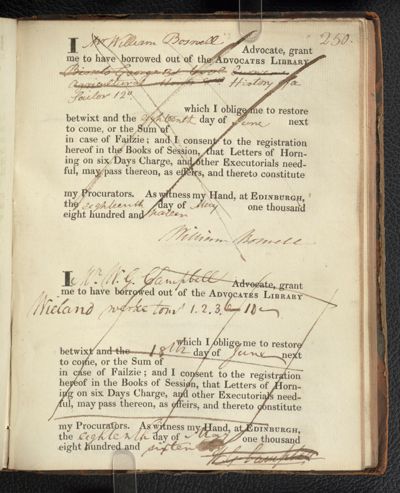 250.
I Mr William Boswell Advocate, grant
me to have borrowed out of the ADVOCATES LIBRARY
History of a
Tailor 12o
which I oblige me to restore
betwixt and the eighteenth day of June next
to come, or the Sum of
in case of Failzie; and I consent to the registration
hereof in the Books of Session, that Letters of Horn-
ing on six Days Charge, and other Executorials need-
ful, may pass thereon, as effeirs, and thereto constitute
my Procurators. As witness my Hand, at EDINBURGH,
the eighteenth day of May one thousand
eight hundred and sixteen
William Boswell
I Mr W. G. Campbell Advocate, grant
me to have borrowed out of the ADVOCATES LIBRARY
Wieland werke tom 1. 2. 3. 
which I oblige me to restore
betwixt and the 18th day of June next
to come, or the Sum of
in case of Failzie; and I consent to the registration
hereof in the Books of Session, that Letters of Horn-
ing on six Days Charge, and other Executorials need-
ful, may pass thereon, as effeirs, and thereto constitute
my Procurators. As witness my Hand, at EDINBURGH,
the eighteenth day of May one thousand
eight hundred and sixteen
W G Campbell